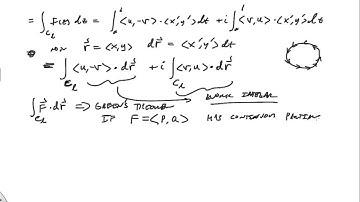 = ∫_{C_l} f(z) dz = ∫_0^1 <u,-v>·<x',y'> dt + i ∫_0^1 <v,u>·<x',y'> dt
NOW r⃗ = <x,y> dr⃗ = <x',y'> dt
= ∫_{C_l} <u,-v>·dr⃗ + i ∫_{C_l} <v,u>·dr⃗
∫_{C_l} F⃗·dr⃗ ⇒ GREEN'S THEOREM
IF F = <P,Q> HAS CONTINUOUS PARTIAL